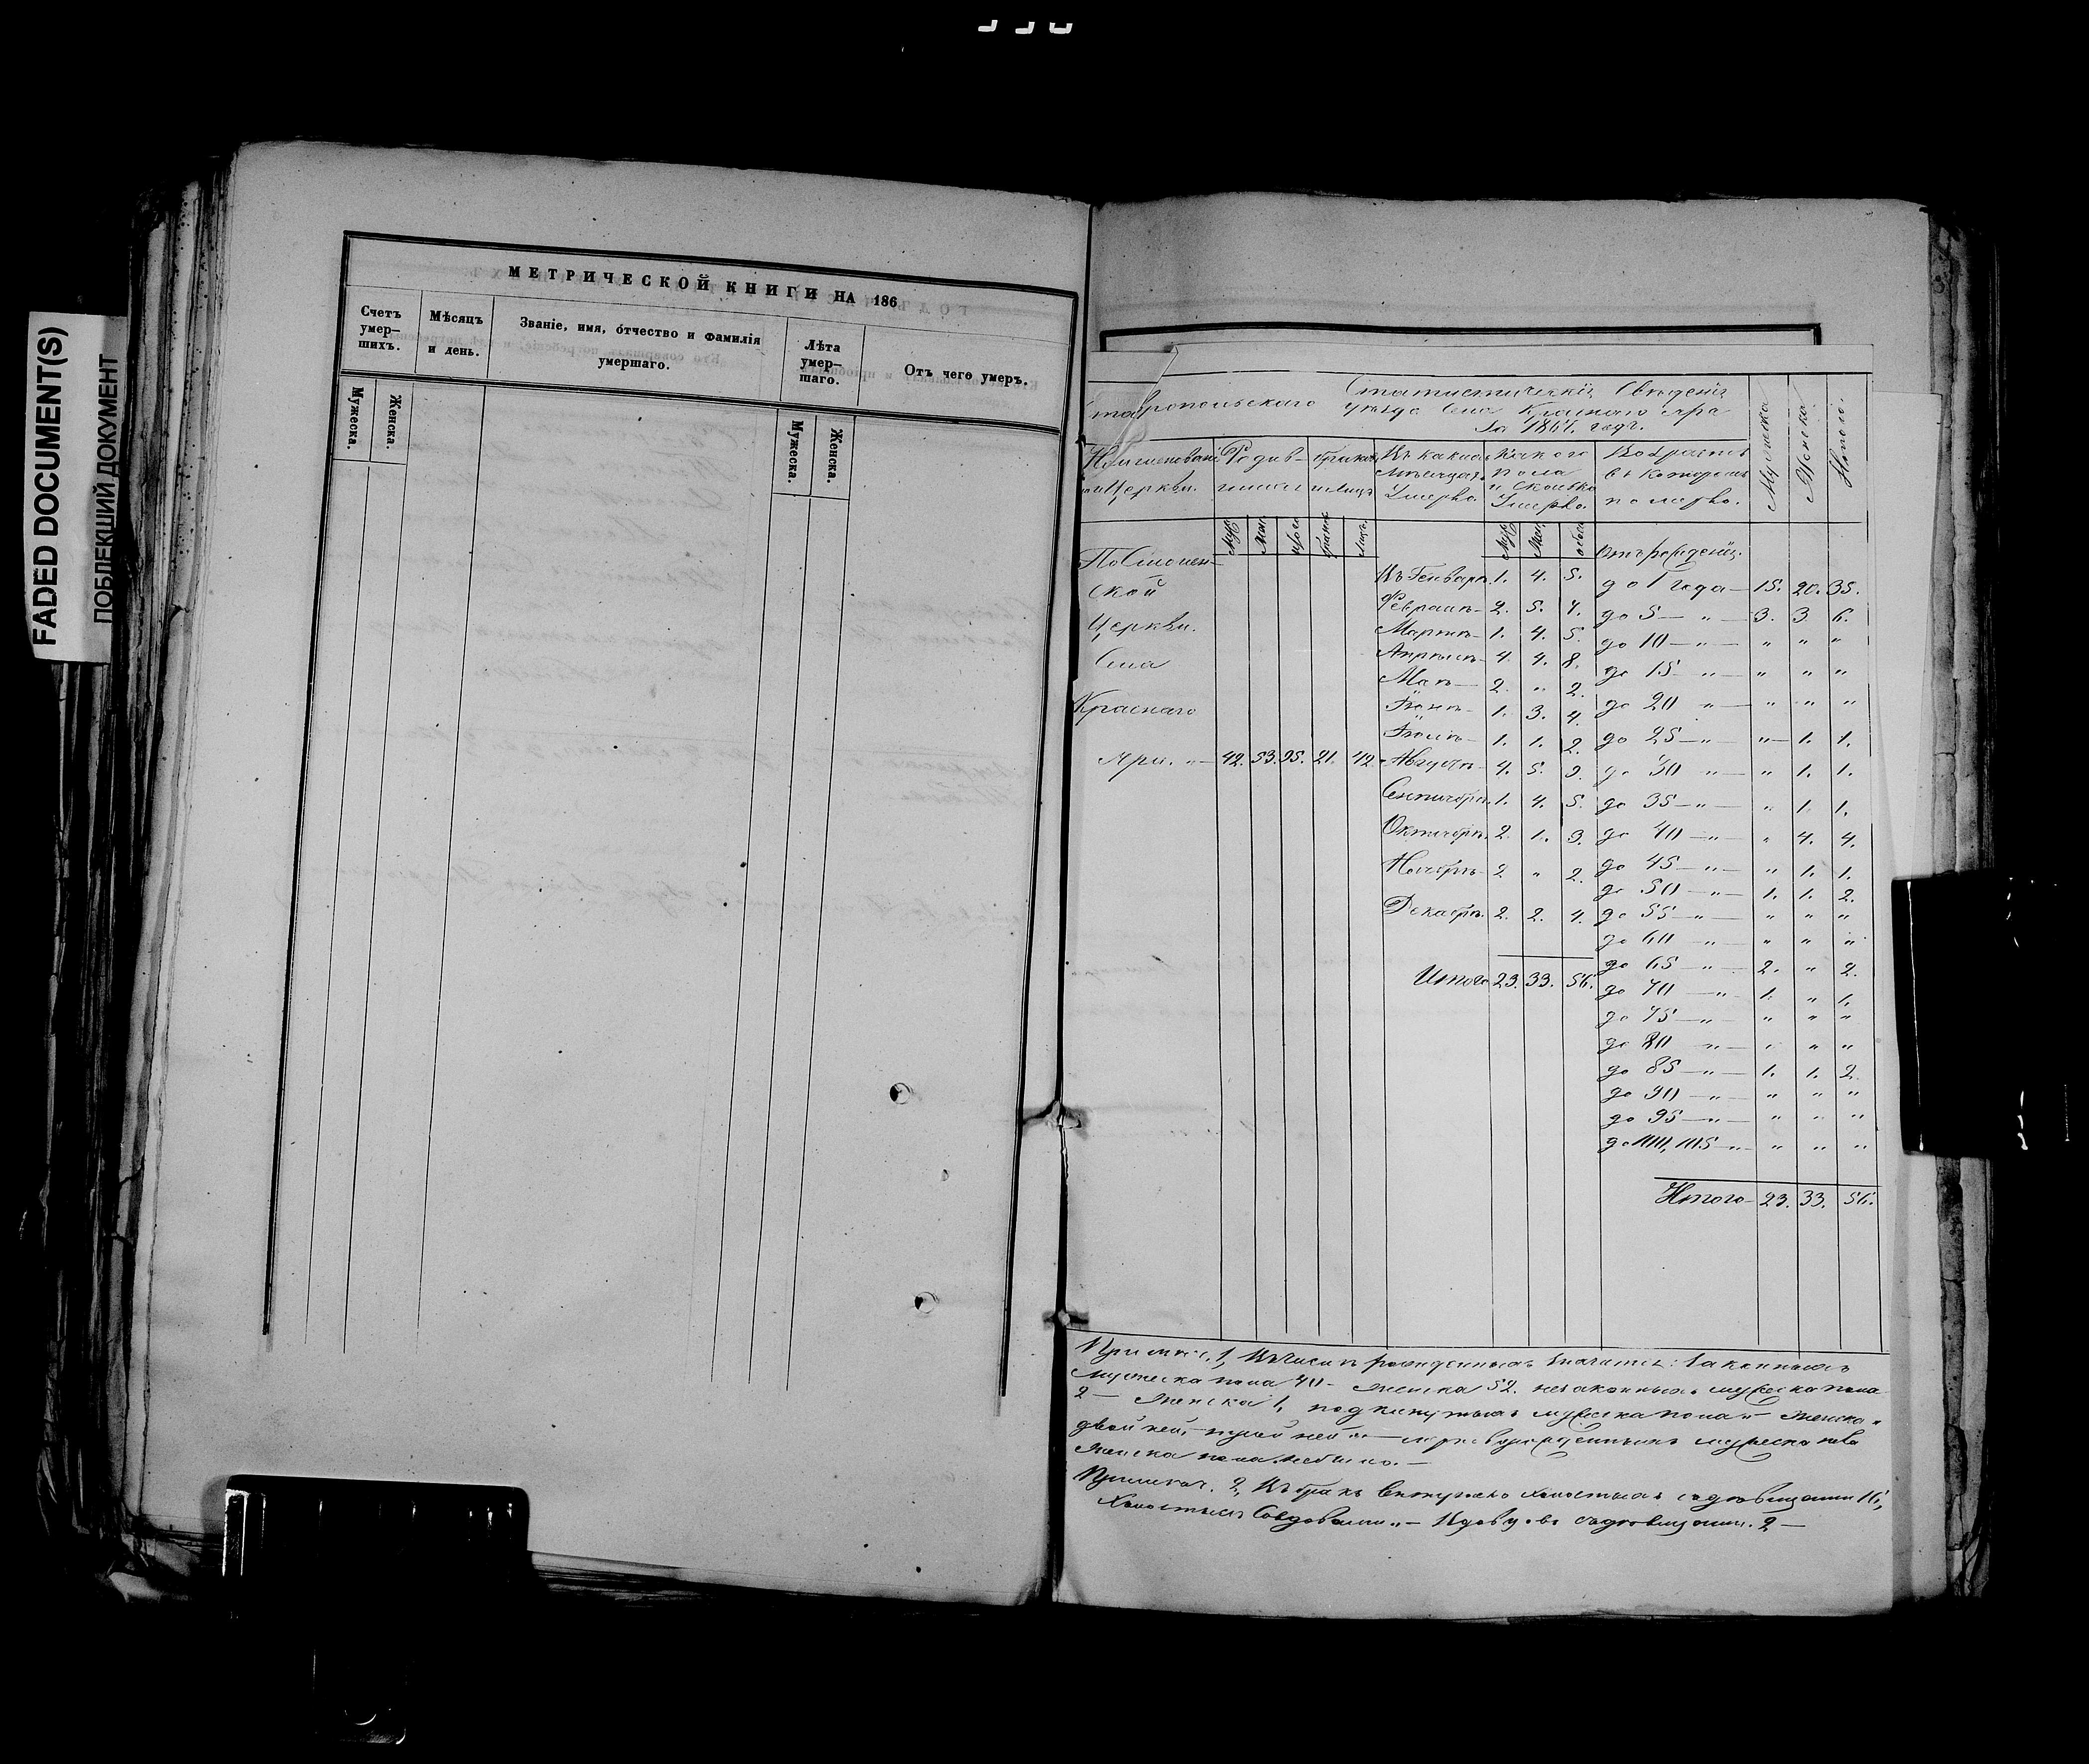 FADED DOCUMENT(S)
ПОБЛЕКШИЙ ДОКУМЕНТ
МЕТРИЧЕСКОЙ КНИГИ НА 186
Счетъ умер-шихъ.
Мужеска.
Женска.
Мѣсяцъ и день.
Званіе, имя, о́тчество и фамилія умершаго.
Лѣта умер-шаго.
Мужеска.
Женска.
Отъ чего умеръ.
Статистическія Свѣденія
Ставропольскаго уѣзда Села Краснаго Яра
За 1867. годъ.
Церкви.
Въ какихъ мѣсяцахъ Умерло.
Какого пола и сколько Умерло.
Возрастъ въ которомъ померло.
Мужеска
Женска.
Итого.
По Смолен-
ской
Церкви.
Села
Краснаго
Яра. 42. 53. 95. 21. 42
Въ Генварѣ 1. 4. 5.
Февралѣ 2. 5. 7.
Мартѣ 1. 4. 5.
Апрѣлѣ 4. 4. 8.
Маѣ 2. " 2.
Іюнѣ 1. 3. 4.
Іюлѣ 1. 1. 2.
Августѣ 4. 5. 9.
Сентябрѣ 1. 4. 5.
Октябрѣ 2. 1. 3.
Ноябрѣ 2 " 2.
Декабрѣ 2. 2. 4.
Итого 23. 33. 56.
Отъ рожденія.
до 1 года — 15. 20. 35.
до 5 — " — 3. 3. 6.
до 10 — " — " " "
до 15 — " — " " "
до 20 " — " " "
до 25 — " " — 1. 1.
до 30 " — " 1. 1.
до 35 — " — " 1. 1.
до 40 — " — " 4. 4.
до 45 — " — " 1. 1.
до 50 — " — 1. 1. 2.
до 55 — " — " " "
до 60 " — " " "
до 65 — " — 2. " 2.
до 70 — " 1. " 1.
до 75 — " — " " "
до 80 — " — " " "
до 85 — " — 1. 1. 2.
до 90 — " — " " "
до 95 — " — " " "
до 100, 105 — " — " " "
Итого — 23. 33. 56.
Примѣч. 1, Въ числѣ рожденныхъ значится: законныхъ
мужеска пола 40 — женска 52. незаконныхъ мужеска пола
2 — женска 1, подкинутыхъ мужеска пола " женска "
женска пола небыло. —
Примѣч. 2, Въ бракъ вступило холостыхъ съ дѣвицами
Холостыхъ Совдовами " — Вдовцовъ съ дѣвицами. 2 —